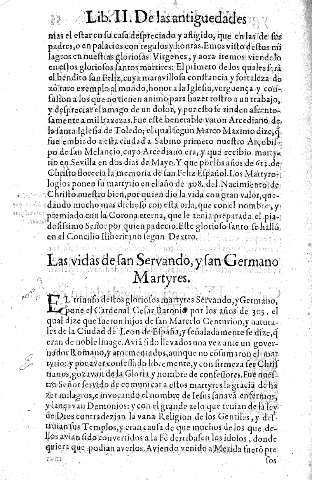 Lib. II. De las antiguedades
mas el estar en su casa despreciado y afligido, que en las de sus
padres, o en palacios con regalos y honras. Emos visto destos mi
lagros en nuestras gloriosas Virgenes, y aora iremos viendolo
en estos gloriosos santos martires: El primero de los quales será
el bendito san Feliz, cuya maravillosa constancia y fortaleza de
xo raro exemplo al mundo, honor a la Iglesia, verguença y con-
fusion a los que no tienen animo para hazer rostro a un trabajo,
y despreciar el amago de un dolor, y por esso se rinden afrento-
samente a mil baxezas. Fue este venerable varon Arcediano de
la santa Iglesia de Toledo; el qual segun Marco Maximo dize, q̃
fue embiado a esta ciudad a Sabino primero nuestro Arçobis-
po de san Melancio, cuyo Arcediano era, y que recibio marty-
rio en Sevilla en dos dias de Mayo. Y que por los años de 612. de
Christo florecia la memoria de san Feliz Español. Los Martyro-
logios ponen su martyrio en el año de 308. del Nacimiento de
Christo nuestro bien, por quien dio la vida con gran valor, que-
dando mucho mas dichoso con esta que con el nombre, y
premiado con la Corona eterna, que le tenia preparada el pia-
dosissimo Señor por quien padecio. Este glorioso santo se halló
en el Concilio Iliberitano segun Dextro.
Las vidas de san Servando, y san Germano
Martyres.
EL triunfo destos gloriosos martyres Servando, y Germano,
pone el Cardenal Cesar Baronio por los años de 305. el
qual dize que fueron hijos de san Marcelo Centurion, y natura-
les de la Ciudad de Leon de España, y señaladamente se dize, q̃
eran de noble linage. Aviã sido llevados una vez ante un gover-
nador Romano, y atormentados, aunque no cõsumaron el mar-
tyrio; y por aver confessado libremente, y con firmeza ser Chris
tianos, gozavan de la Gloria y nombre de confessores. Fue nues-
tro Señor servido de comunicar a estos martyres la gracia de ha
zer milagros, e invocando el nombre de Jesus sanavã enfermos,
y lançavan Demonios: y con el grande zelo que tenian de la ley
de Dios contradezian la vana Religion de los Gentiles, y des-
truian sus Templos, y eran causa de que muchos de los que de-
llos avian sido convertidos a la Fè derribassen los idolos, donde
quiera que podian averlos. Aviendo venido a Merida fuerõ pre
sos